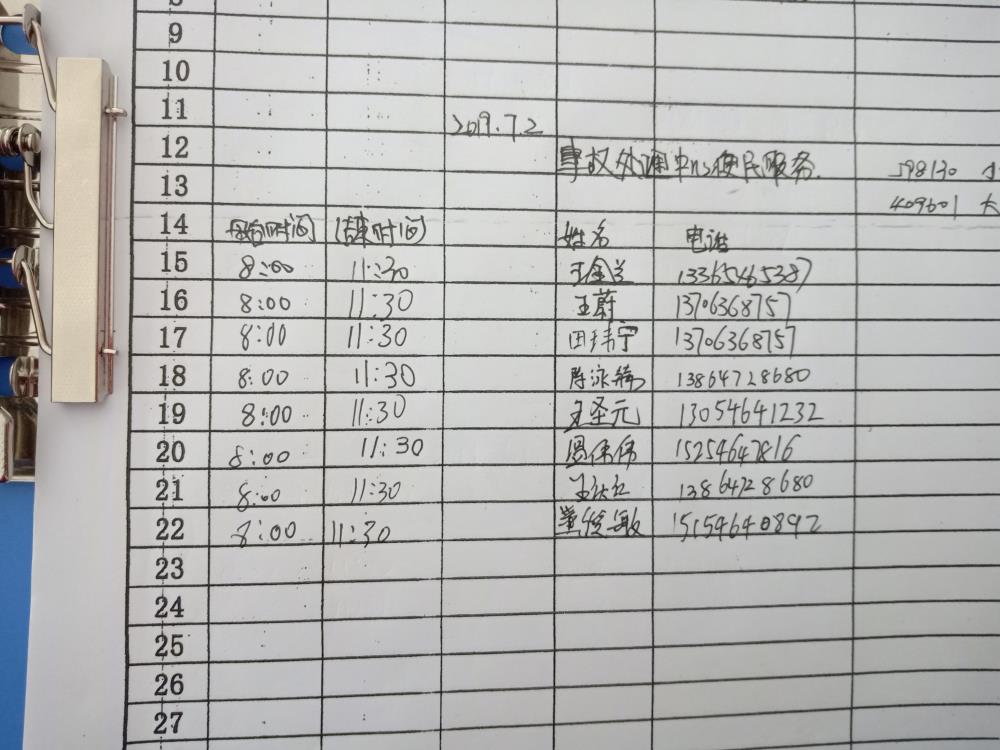 8
9
10
11
2019.7.2
12 事故处理中心便民服务. 598130
13 409601 大
14 开始时间 结束时间 姓名 电话
15 8:00 11:30 王金兰 13365465387
16 8:00 11:30 王蔚 13706368757
17 8:00 11:30 田玮宁 13706368757
18 8:00 11:30 陈泳 13864728680
19 8:00 11:30 王圣元 13054641232
20 8:00 11:30 周伟伟 15254647816
21 8:00 11:30 王 13864728680
22 8:00 11:30 董俊敏 15154640892
23
24
25
26
27